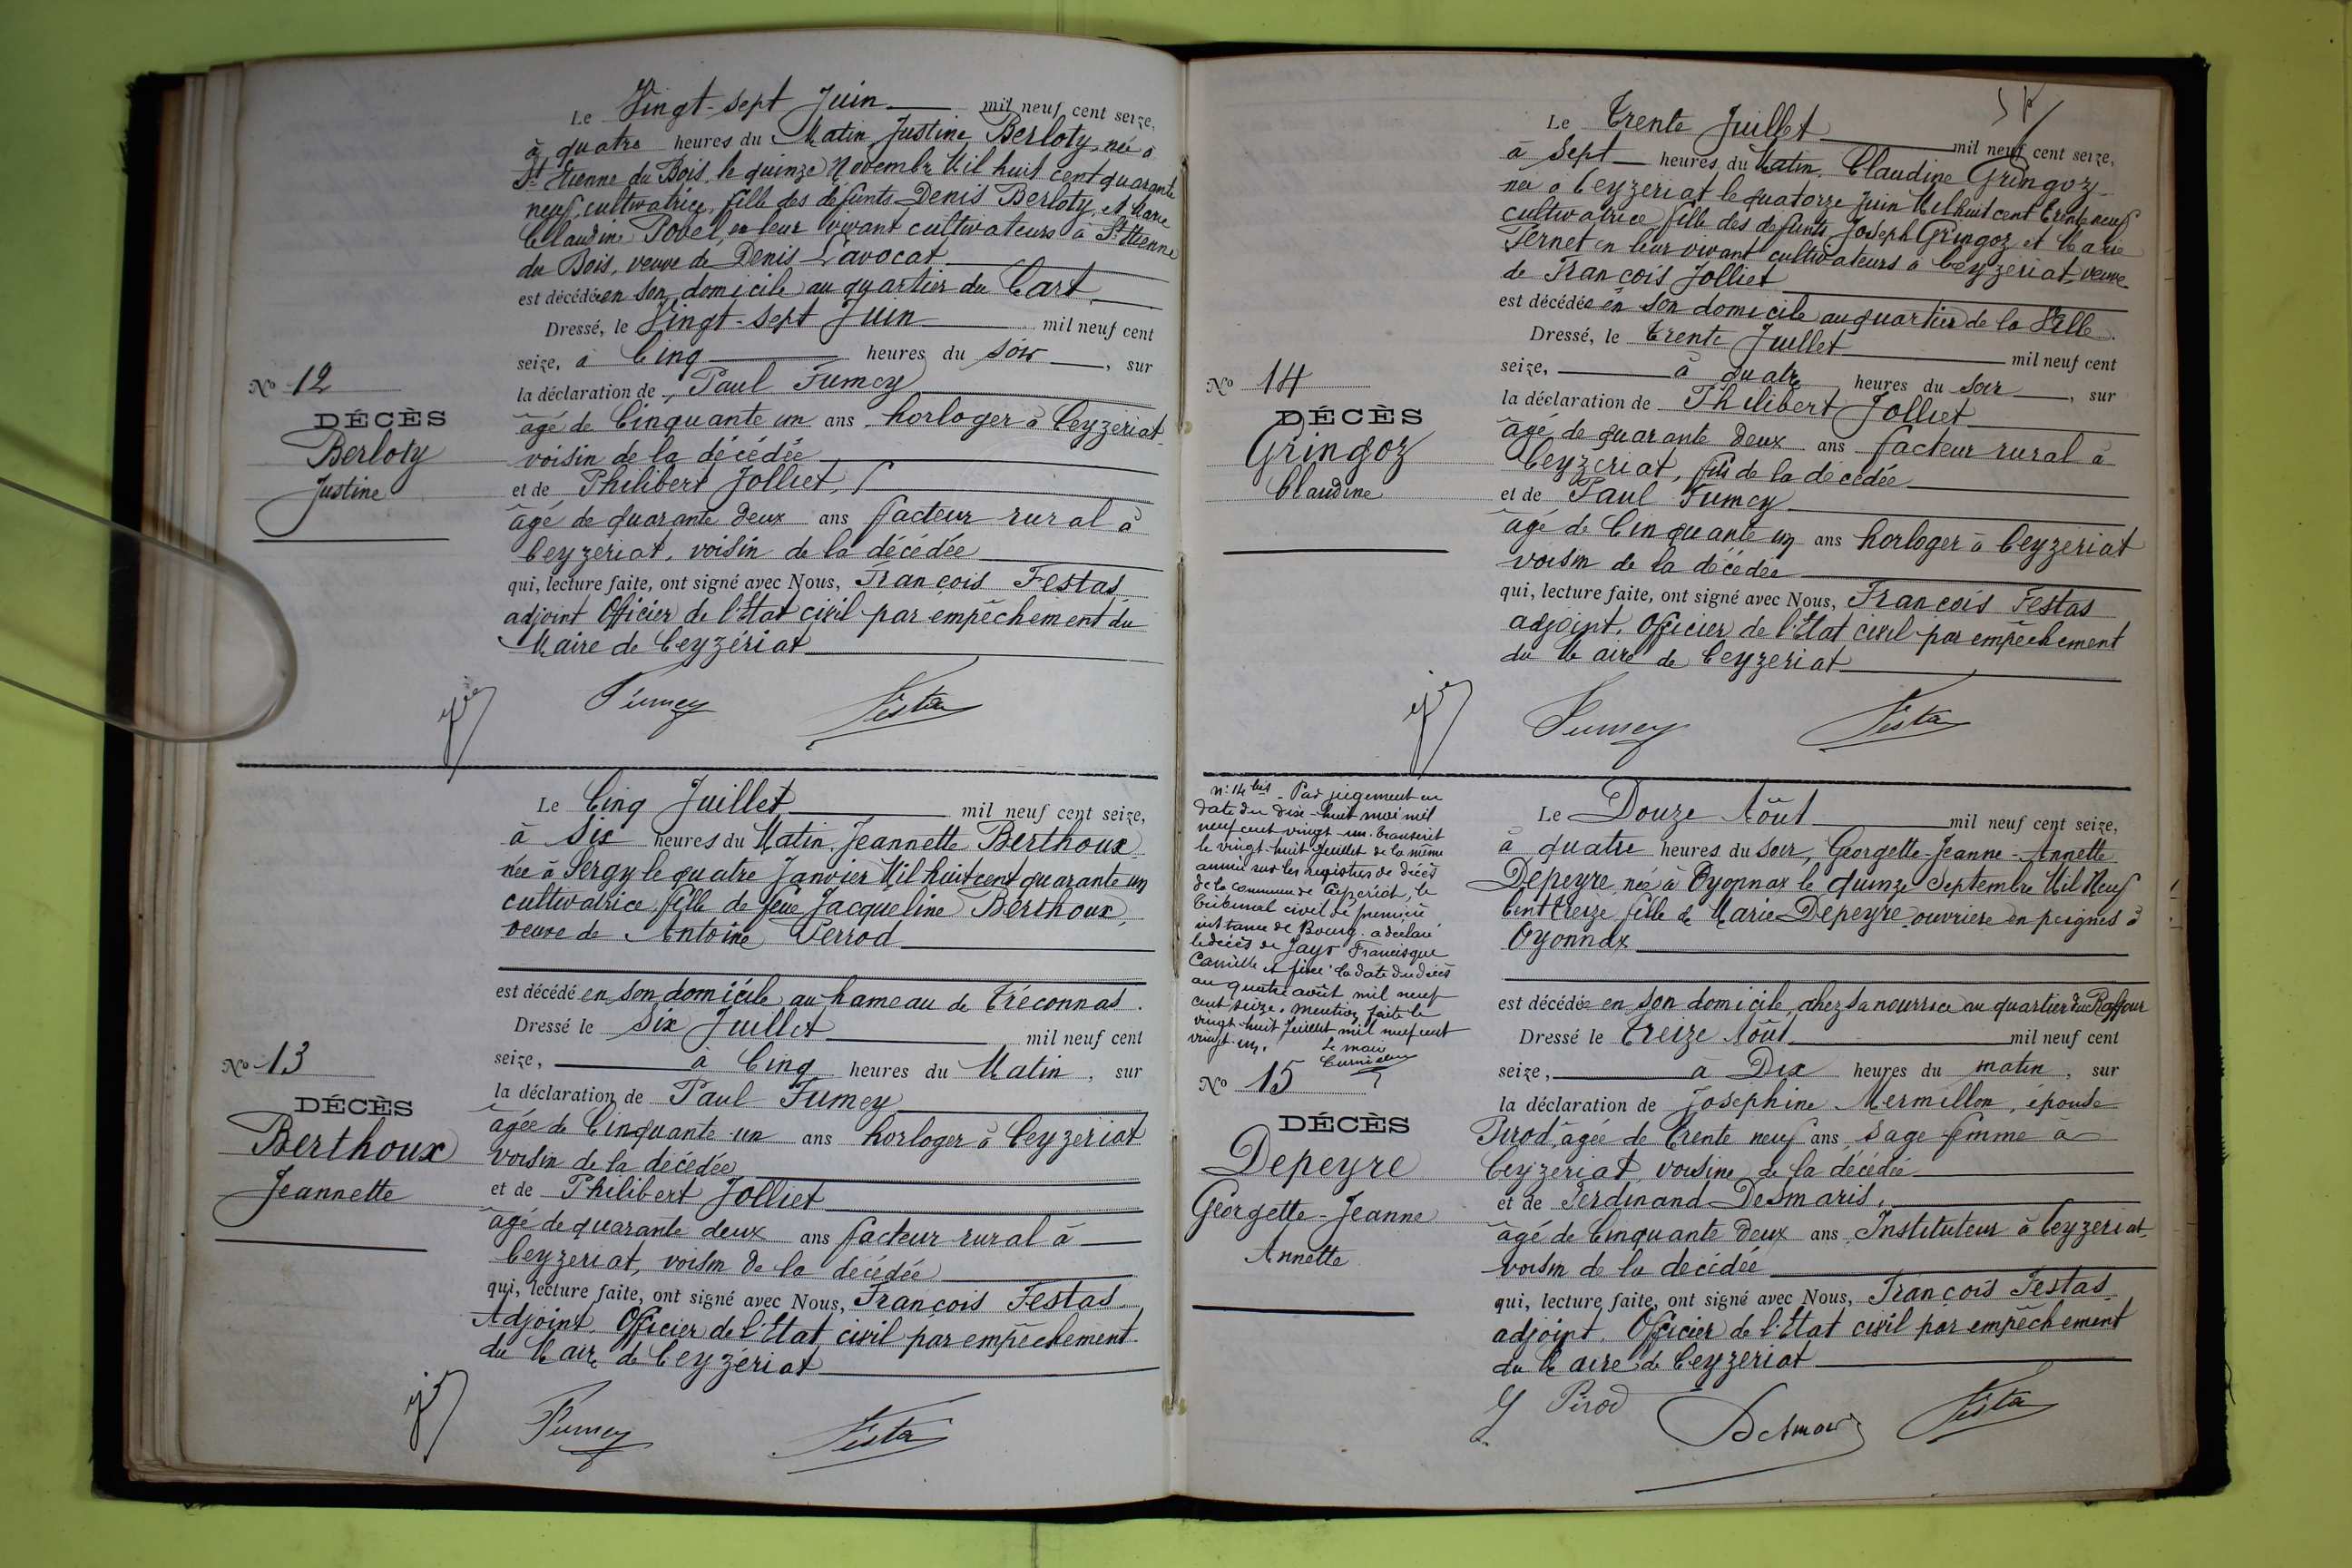 Le Vingt-sept Juin mil neuf cent seize,
à quatre heures du Matin, Justine Berloty, née à
St Etienne du Bois, le quinze Novembre Mil huit cent quarante
neuf, cultivatrice, fille des défunts Denis Berloty, et Marie
Claudine Povel, en leur vivant cultivateurs à St Etienne
du Bois, veuve de Denis Lavocat
est décédée en son domicile au quartier du Cart
Dressé, le Vingt-sept Juin mil neuf cent
seize, à Cinq heures du soir, sur
la déclaration de Paul Fumey
âgé de Cinquante un ans horloger à Ceyzériat
voisin de la décédée
et de Philibert Jolliet,
âgé de quarante deux ans facteur rural à
Ceyzériat, voisin de la décédée
qui, lecture faite, ont signé avec Nous, François Festas
adjoint Officier de l'Etat civil par empêchement du
Maire de Ceyzériat
No 12
DÉCÈS
Berloty
Justine
Fumey Festas
Le Cinq Juillet mil neuf cent seize,
à Six heures du Matin, Jeannette Berthoux
née à Sergy le quatre Janvier Mil huit cent quarante un
cultivatrice, fille de feue Jacqueline Berthoux,
veuve de Antoine Perrod
est décédé en son domicile au hameau de Tréconnas.
Dressé le Six Juillet mil neuf cent
seize, à Cinq heures du Matin, sur
la déclaration de Paul Fumey
âgée de Cinquante un ans horloger à Ceyzeriat
voisin de la décédée
et de Philibert Jolliet
âgé de quarante deux ans facteur rural à
Ceyzeriat, voisin de la décédée
qui, lecture faite, ont signé avec Nous, François Festas
Adjoint, Officier de l'Etat civil par empêchement
du Maire de Ceyzériat
No 13
DÉCÈS
Berthoux
Jeannette
Fumey Festas
Le Trente Juillet mil neuf cent seize,
à Sept heures du Matin, Claudine Gringoz
née à Ceyzeriat le quatorze Juin Mil huit cent trente neuf
cultivatrice fille des défunts Joseph Gringoz et Marie
Fernet en leur vivant cultivateurs à Ceyzeriat, veuve
de François Jolliet
est décédée en son domicile au quartier de la Ville.
Dressé, le Trente Juillet mil neuf cent
seize, à quatre heures du soir, sur
la déclaration de Philibert Jolliet
âgé de quarante deux ans facteur rural à
Ceyzeriat, fils de la décédée
et de Paul Fumey
âgé de Cinquante un ans horloger à Ceyzeriat
voisin de la décédée
qui, lecture faite, ont signé avec Nous, François Festas
adjoint, Officier de l'Etat civil par empêchement
du Maire de Ceyzeriat
No 14
DÉCÈS
Gringoz
Claudine
Fumey Festas
n: 14 bis - Par jugement en
date du dix-huit mai mil
neuf cent vingt-un, transcrit
le vingt-huit Juillet de la même
année sur les registres de décès
de la commune de Ceyzériat, le
tribunal civil de première
instance de Bourg a déclaré
le décès de Jays Francisque
Camille et fixé la date du décès
au quatre août mil neuf
cent seize. Mention faite le
vingt-huit Juillet mil neuf cent
vingt-un.
Le maire
Le Douze Août mil neuf cent seize,
à quatre heures du soir, Georgette-Jeanne-Annette
Depeyre, née à Oyonnax le quinze Septembre Mil Neuf
Cent treize, fille de Marie Depeyre, ouvrière en peignes à
Oyonnax
est décédée en son domicile, chez sa nourrice au quartier du Raffour
Dressé le Treize Août mil neuf cent
seize, à Dix heures du matin, sur
la déclaration de Josephine Mermillon, épouse
Pirod, âgée de trente neuf ans, sage femme à
Ceyzeriat, voisine de la décédée
et de Ferdinand Desmaris,
âgé de Cinquante deux ans, Instituteur à Ceyzeriat,
voisin de la décédée
qui, lecture faite, ont signé avec Nous, François Festas
adjoint, Officier de l'Etat civil par empêchement
du Maire de Ceyzeriat
No 15
DÉCÈS
Depeyre
Georgette-Jeanne
Annette
J Pirod Desmaris Festas